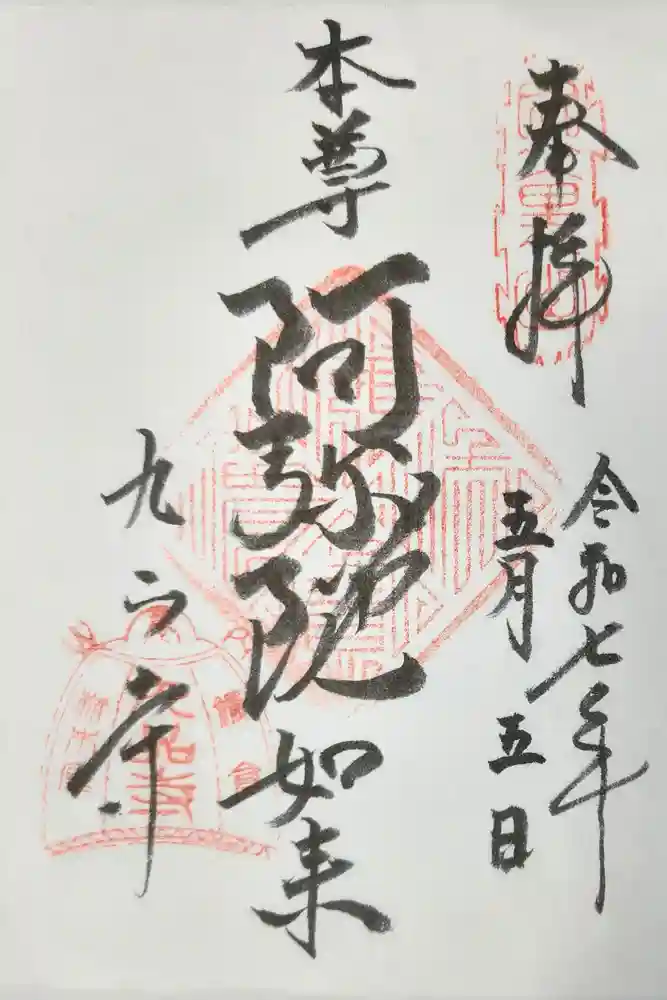 奉拝
令和七年
五月五日
本尊
阿弥陀如来
九品寺